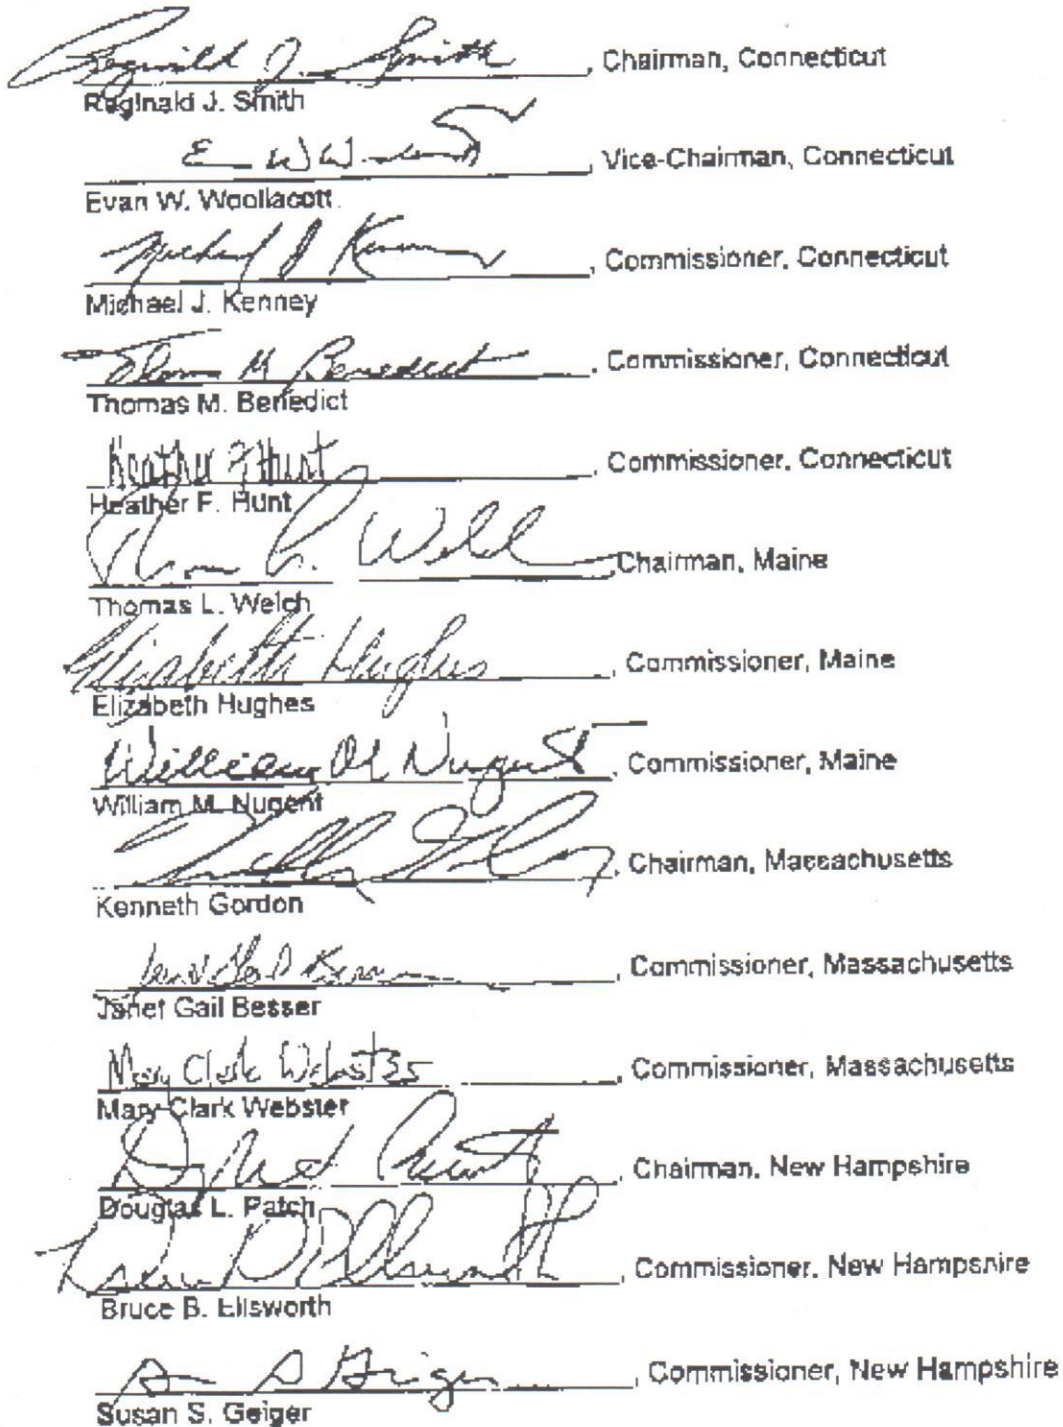 Reginald J. Smith, Chairman, Connecticut
Reginald J. Smith
E W W, Vice-Chairman, Connecticut
Evan W. Woollacott
Michael J Kenney, Commissioner, Connecticut
Michael J. Kenney
Thomas M Benedict, Commissioner, Connecticut
Thomas M. Benedict
Heather F Hunt, Commissioner, Connecticut
Heather F. Hunt
Thomas L. Welch, Chairman, Maine
Thomas L. Welch
Elizabeth Hughes, Commissioner, Maine
Elizabeth Hughes
William M Nugent, Commissioner, Maine
William M. Nugent
, Chairman, Massachusetts
Kenneth Gordon
Janet Gail Besser, Commissioner, Massachusetts
Janet Gail Besser
Mary Clark Webster, Commissioner, Massachusetts
Mary Clark Webster
, Chairman, New Hampshire
Douglas L. Patch
Bruce B Ellsworth, Commissioner, New Hampshire
Bruce B. Ellsworth
S Geiger, Commissioner, New Hampshire
Susan S. Geiger